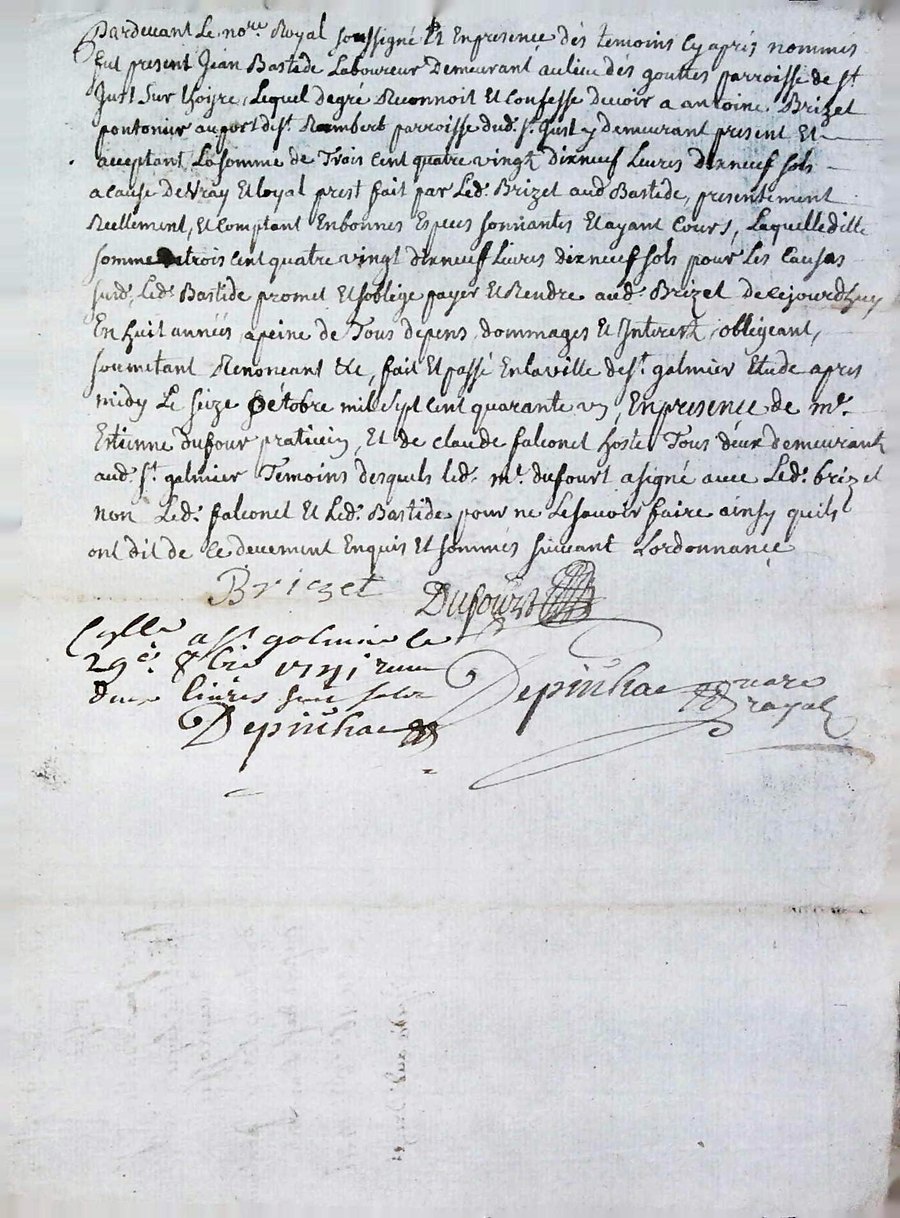 Pardevant Le nore. Royal soussigné Et Enpresence dés temoins Cy aprés nommés
fut present Jean Bastide Laboureur Demeurant aulieu dés gouttes parroisse de st.
Just Sur Lhoyre, Lequel degré Reconnoit Et Confesse Devoir a antoine Brizet
pontonier auport de st. Rambert parroisse dud. st. Just y demeurant present Et
acceptant, La somme de Trois Cent quatre vingt dixneuf Livres dixneuf sols
a cause de vray Et loyal prest fait par Led. Brizet aud. Bastide, presentement
Reellement, Et Comptant Enbonnes Especes sonnantes Et ayant Cours, Laquelle ditte
somme de trois Cent quatre vingt dixneuf Livres dixneuf sols pour Les Causes
susd. Led. Bastide promet Et soblige payer Et Rendre aud. Brizet de cejourdhuy
En huit années a peine de Tous depens, dommages Et Interest, obligeant,
soumetant Renonceant &c, fait Et passé Enlaville de st. galmier Etude apres
midy Le seize Octobre mil sept cent quarante un, En presence de mr.
Estienne dufour praticien, Et de claude falconet hoste Tous deux demeurant
aud. st. galmier Temoins desquels led. mr. dufour a signé avec Led. brizet
non Led. falconet Et Led. Bastide pour ne Le savoir faire ainsy quils
ont dit de ce deuement Enquis Et sommés suivant Lordonnance
Brizet
Dufour
Cllé a st galmier le
29e. 8bre 1741 receu
deux livres sept sols
Depinhac
Depinhac
nore
royal